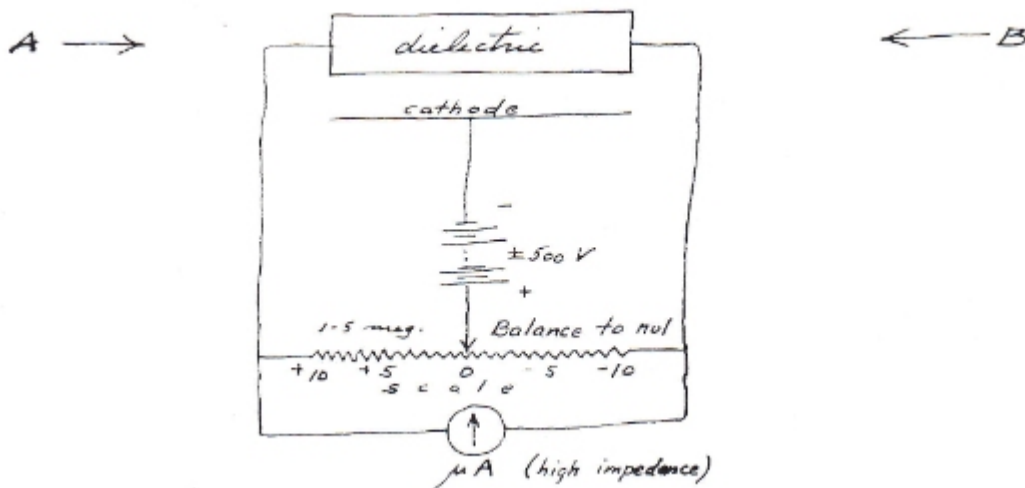 A
dielectric
B
cathode
-
± 500 V
+
1-5 meg.
Balance to nul
+10 +5 0 -5 -10
scale
μA (high impedance)